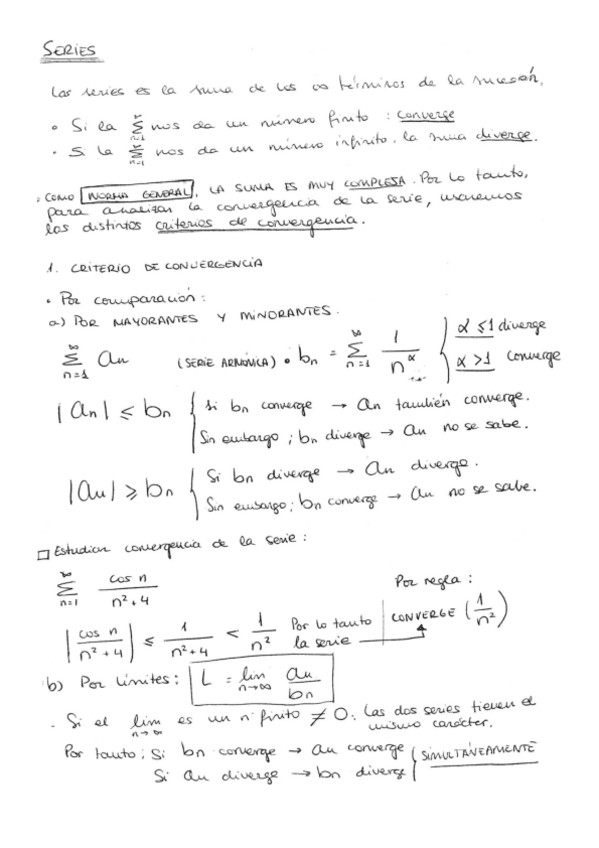 SERIES
Las series es la suma de los ∞ términos de la sucesión,
• Si la ∞ Σ n=1 nos da un número finito : converge
• Si la ∞ Σ n=1 nos da un número infinito. la suma diverge.
• COMO NORMA GENERAL, LA SUMA ES MUY COMPLEJA. Por lo tanto,
para analizar la convergencia de la serie, usaremos
los distintos criterios de convergencia.
1. CRITERIO DE CONVERGENCIA
• Por comparación :
a) POR MAYORANTES Y MINORANTES.
∞ Σ n=1 an (SERIE ARMÓNICA) • bn = ∞ Σ n=1 1/n^α { α ≤ 1 diverge
α > 1 converge
|an| ≤ bn { Si bn converge → an también converge.
Sin embargo ; bn diverge → an no se sabe.
|an| ≥ bn { Si bn diverge → an diverge.
Sin embargo; bn converge → an no se sabe.
□ Estudiar convergencia de la serie :
∞ Σ n=1 cos n / n²+4
Por regla :
|cos n / n²+4| ≤ 1/n²+4 < 1/n² Por lo tanto la serie → CONVERGE (1/n²)
b) Por límites : L = lim n→∞ an/bn
. Si el lim n→∞ es un nº finito ≠ 0. Las dos series tienen el
mismo carácter.
Por tanto ; Si bn converge → an converge { SIMULTÁNEAMENTE
Si an diverge → bn diverge